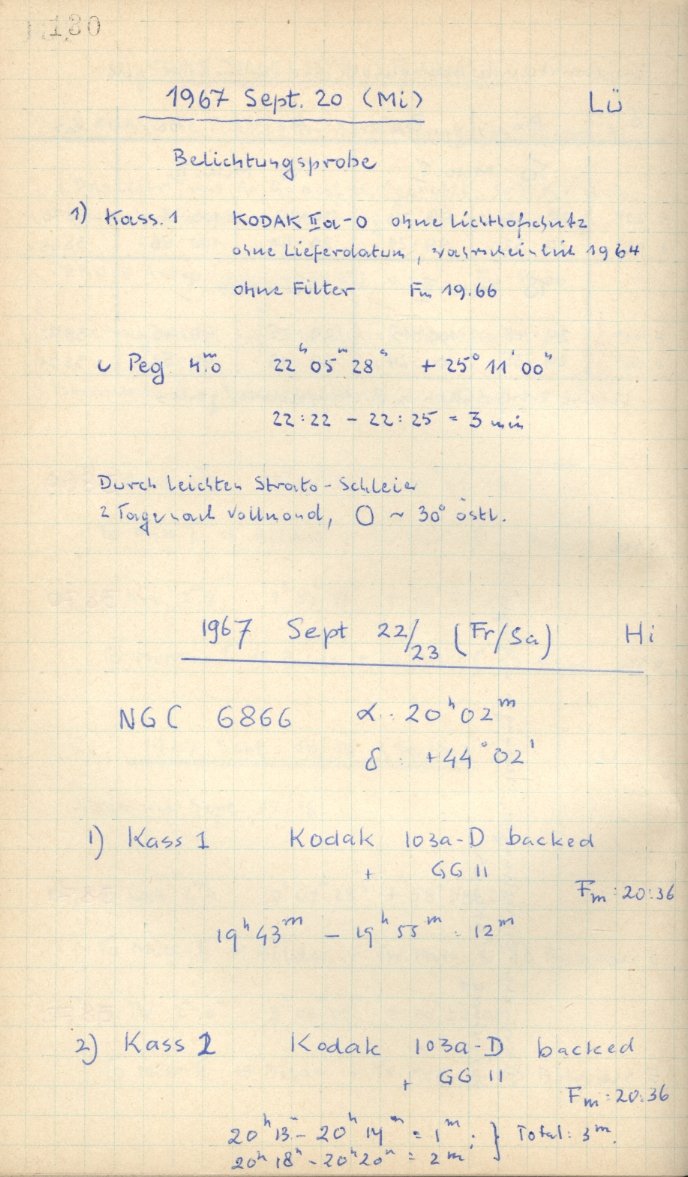 130
1967 Sept. 20 (Mi) Lü
Belichtungsprobe
1) Kass. 1 KODAK IIa-O ohne Lichthofschutz
ohne Lieferdatum, wahrscheinlich 1964
ohne Filter Fm 19.66
υ Peg 4.ᵐ0 22ʰ05ᵐ28ˢ + 25°11'00"
22:22 - 22:25 = 3 min
Durch leichten Strato-Schleier
2 Tage nach Vollmond, O ~ 30° östl.
1967 Sept 22/23 (Fr/Sa) Hi
NGC 6866 α : 20ʰ02ᵐ
δ : +44°02'
1) Kass 1 Kodak 103a-D backed
+ GG 11
Fm : 20.36
19ʰ43ᵐ - 19ʰ55ᵐ = 12ᵐ
2) Kass 2 Kodak 103a-D backed
+ GG 11
Fm : 20.36
20ʰ13ᵐ - 20ʰ14ᵐ = 1ᵐ ; } Total : 3ᵐ.
20ʰ18ᵐ - 20ʰ20ᵐ = 2ᵐ